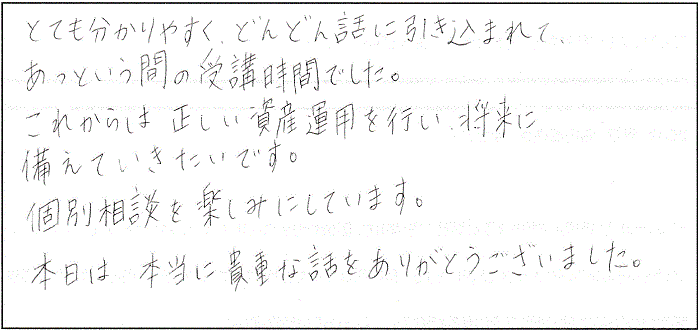 とても分かりやすく、どんどん話に引き込まれて
あっという間の受講時間でした。
これからは正しい資産運用を行い、将来に
備えていきたいです。
個別相談を楽しみにしています。
本日は、本当に貴重な話をありがとうございました。